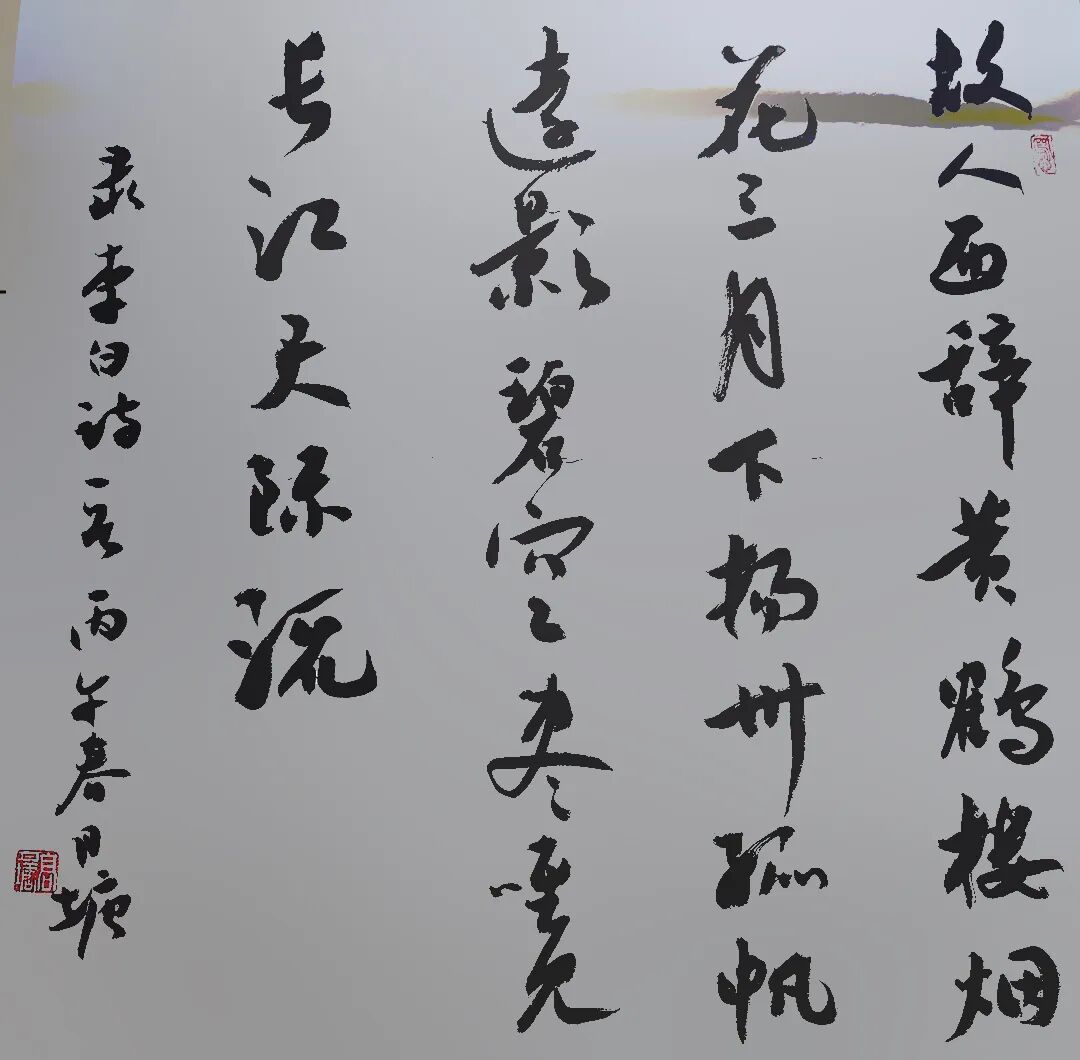 故人西辞黄鹤楼烟
花三月下扬州孤帆
远影碧空尽唯见
长江天际流
录李白诗一首丙午春日塘